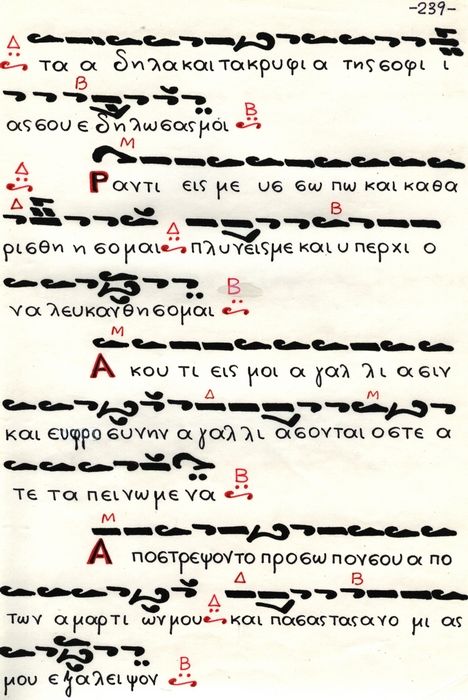 -239-
τα α δηλα και τα κρυφι α της σοφι ι
ας σου ε δη λωσας μοι
Ραντι εις με υσ σω πω και καθα
ρισθη η σομαι πλυνεις με και υ περ χι ο
να λευκανθη σομαι
Α κου τι εις μοι α γαλ λι α σιν
και ευφρο συνην α γαλ λι ασονται οστε α
τε τα πεινωμενα
Α ποστρεψον το προσω πον σου α πο
των α μαρτι ων μου και πασας τας ανο μι ας
μου ε ξαλειψον